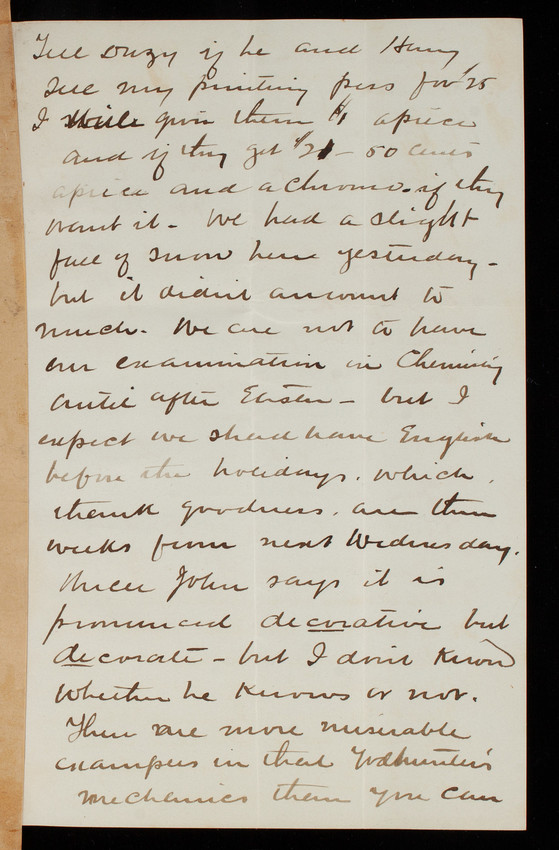 Tell Duzy if he and Harry
sell my printing press for $25
I will give them $1 apiece
and if they get $21 - 50 cents
apiece and a chromo. if they
want it - We had a slight
fall of snow here yesterday -
but it didn't amount to
much. We are not to have
our examination in Chemistry
until after Easter - but I
expect we shall have English
before the holidays. which,
thank goodness, are three
weeks from next Wednesday.
Uncle John says it is
pronounced decorative but
decorate - but I don't know
whether he knows or not.
There are more miserable
examples in that Todhunter's
mechanics than you can